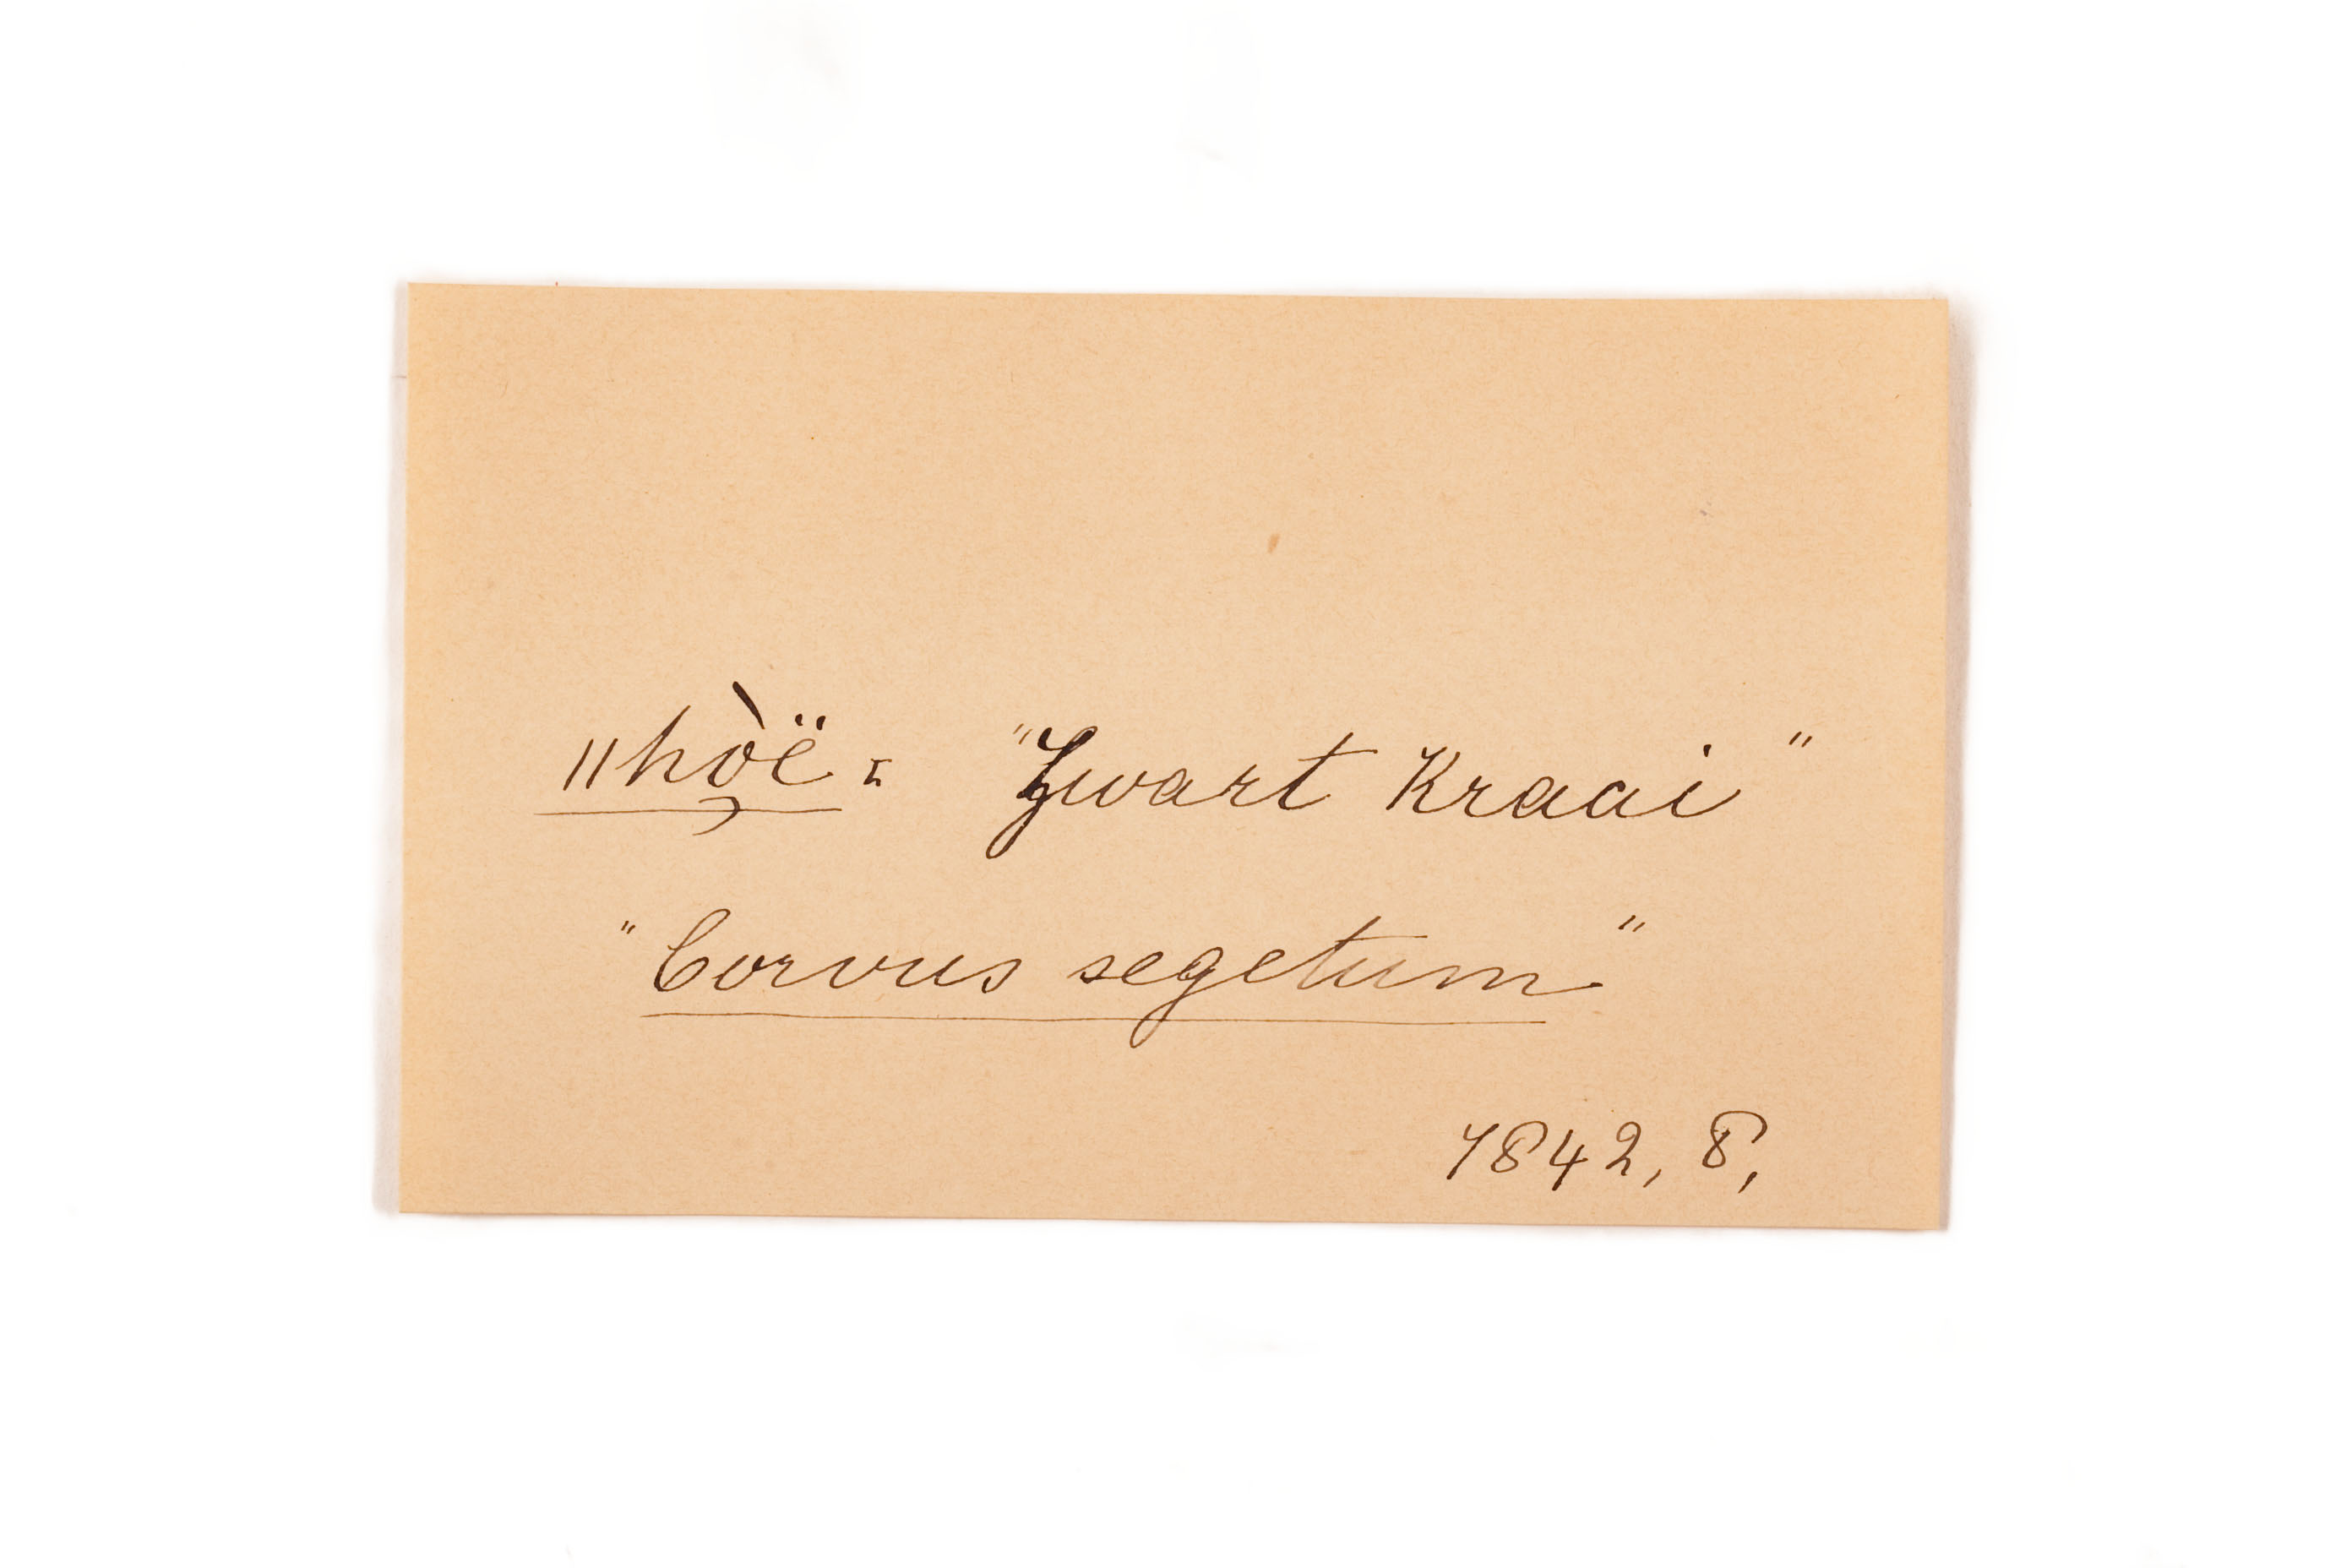 ǁhò̯ë = "Zwart Kraai"
"Corvus segetum"
1842, 8,